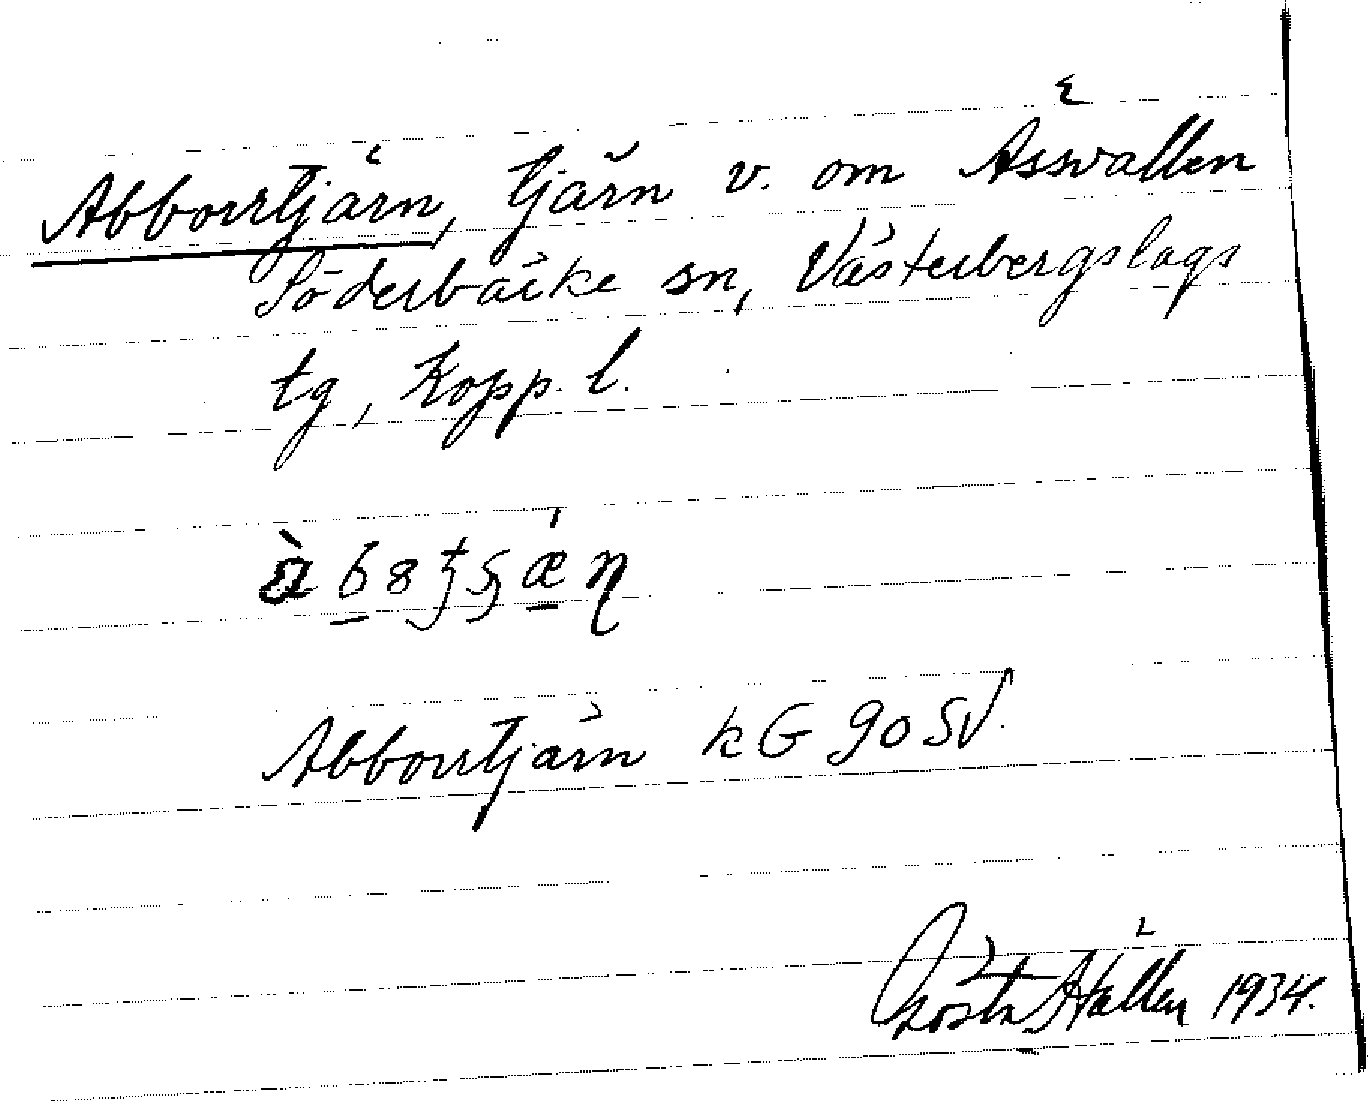 Abborrtjärn, tjärn v. om Åsvallen
Söderbärke sn, Västerbergslags
tg, Kopp. l.
Abborrtjärn kG 90 SV.
Gösta Hällen 1934.